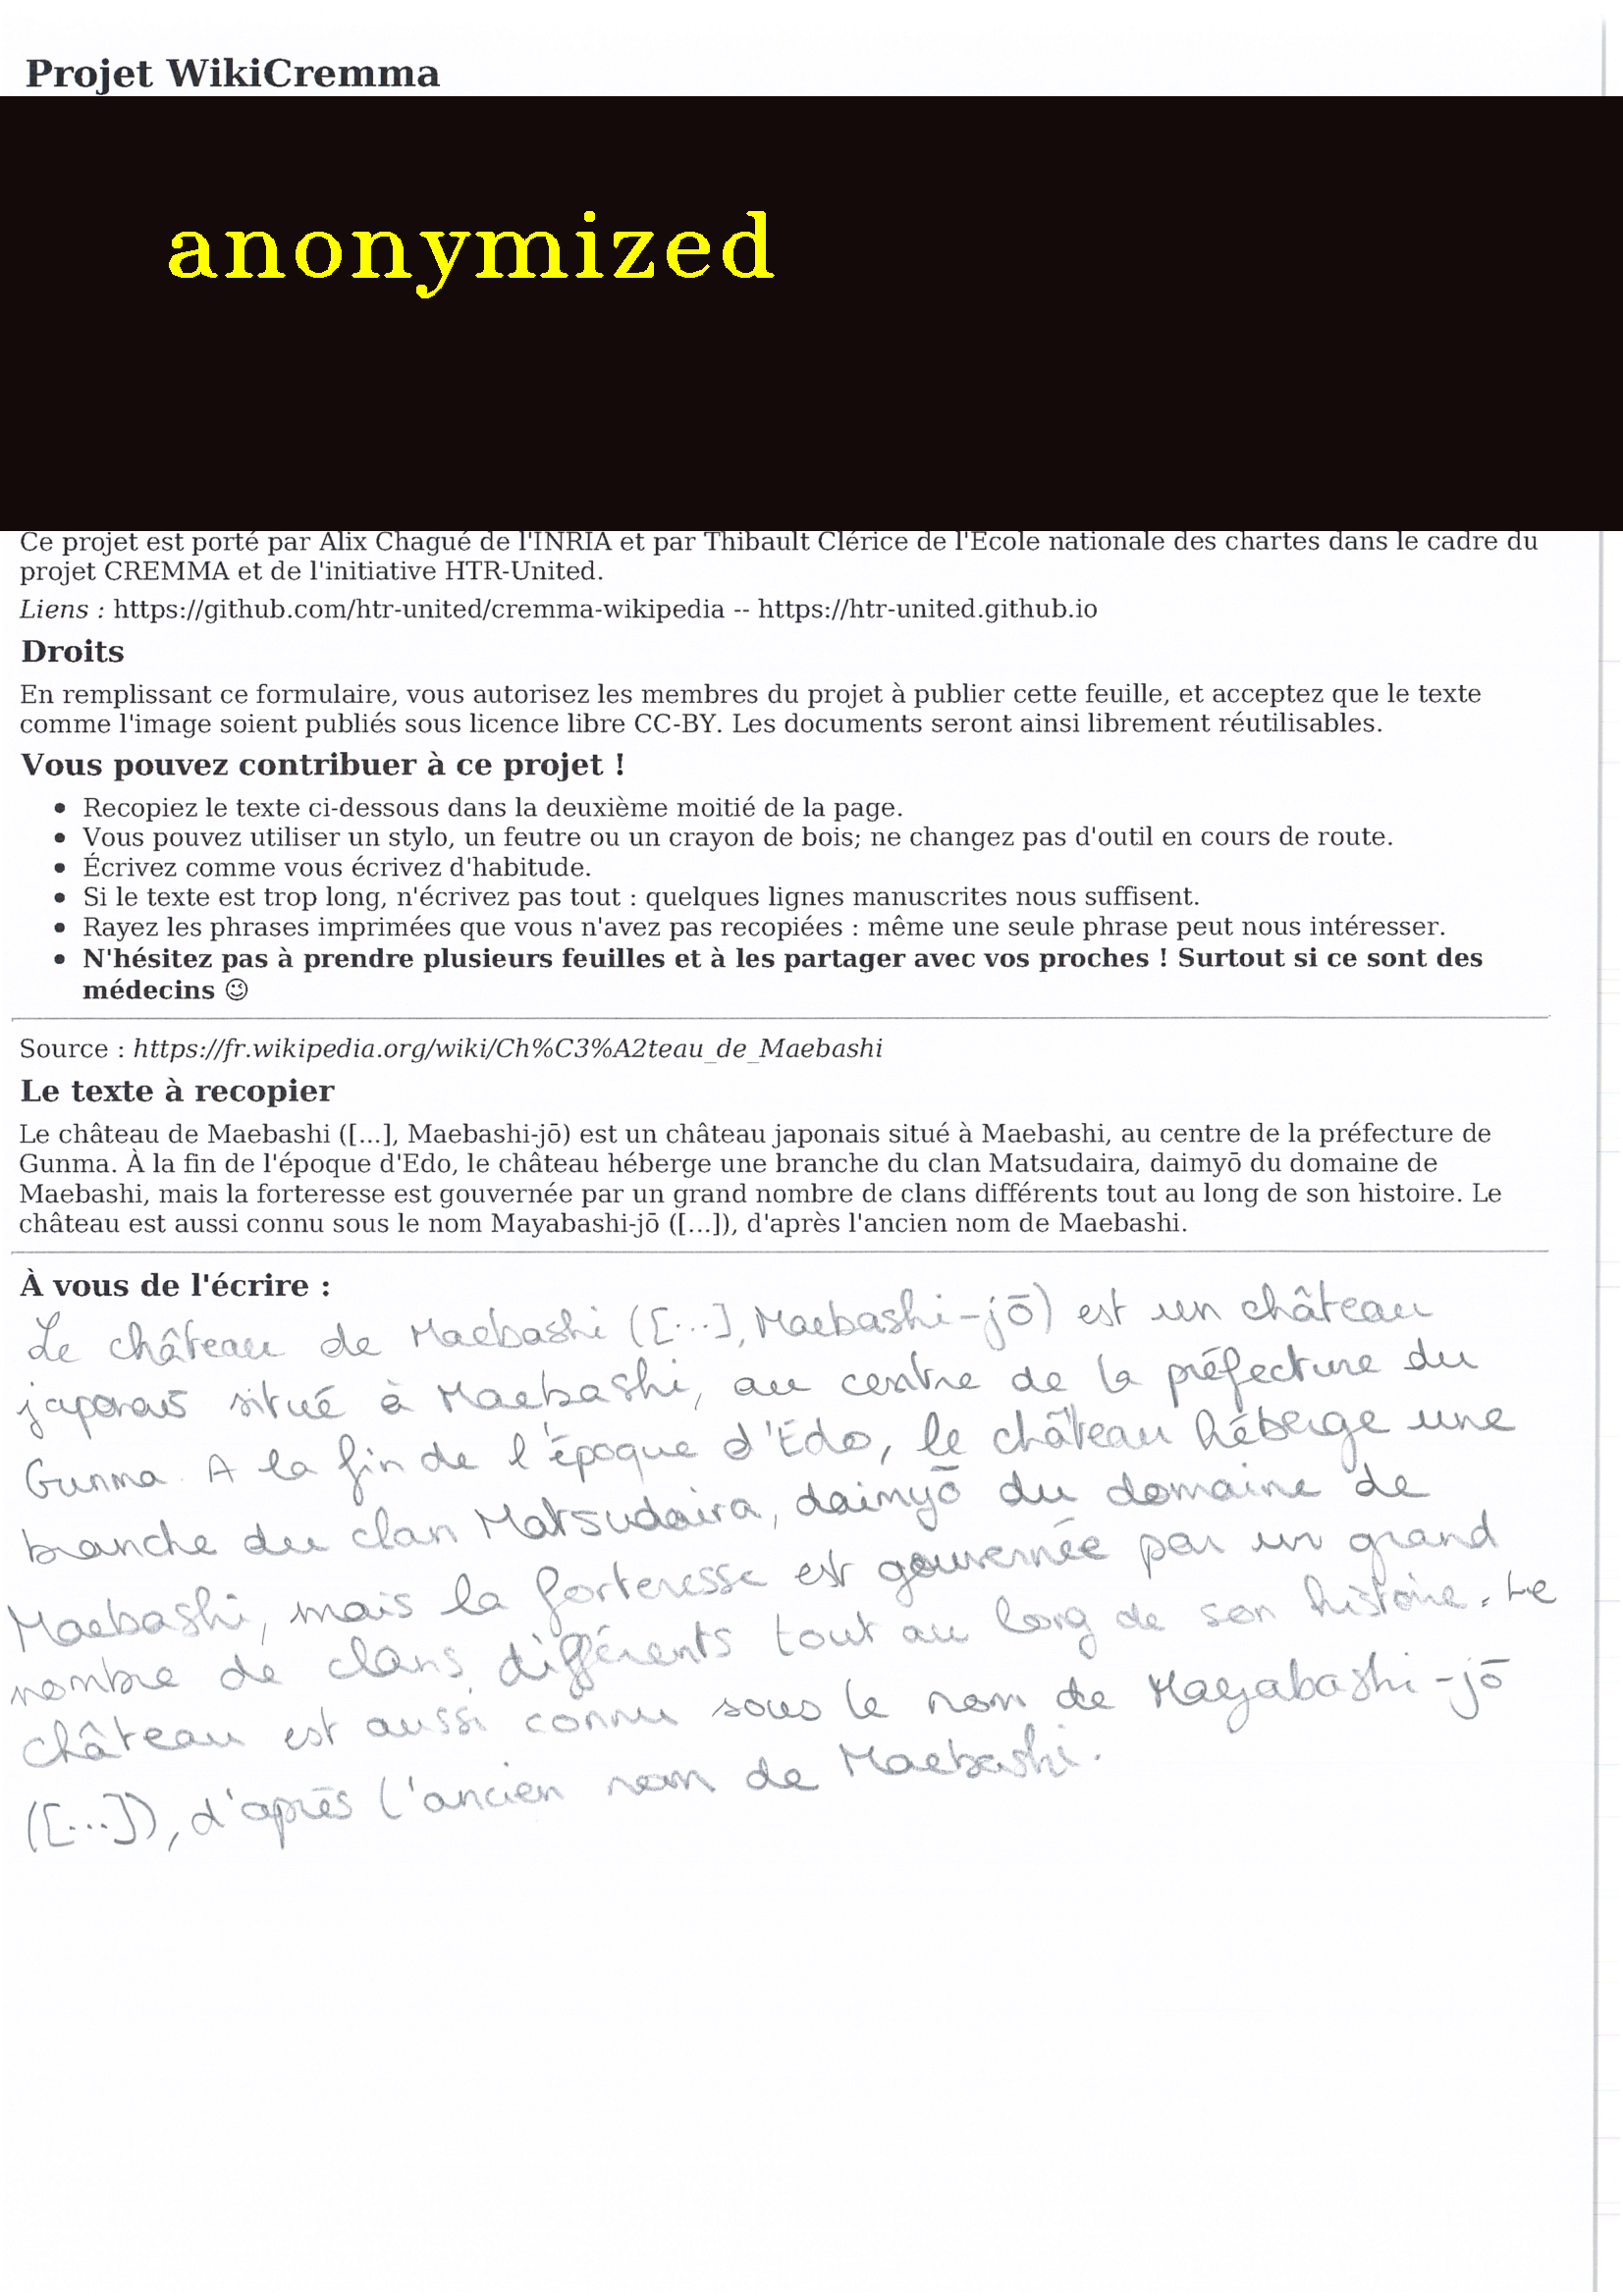 Projet WikiCremma
anonymized
Ce projet est porté par Alix Chagué de l'INRIA et par Thibault Clérice de l'École nationale des chartes dans le cadre du
projet CREMMA et de l'initiative HTR-United.
Liens : https://github.com/htr-united/cremma-wikipedia -- https://htr-united.github.io
Droits
En remplissant ce formulaire, vous autorisez les membres du projet à publier cette feuille, et acceptez que le texte
comme l'image soient publiés sous licence libre CC-BY. Les documents seront ainsi librement réutilisables.
Vous pouvez contribuer à ce projet !
• Recopiez le texte ci-dessous dans la deuxième moitié de la page.
• Vous pouvez utiliser un stylo, un feutre ou un crayon de bois; ne changez pas d'outil en cours de route.
• Écrivez comme vous écrivez d'habitude.
• Si le texte est trop long, n'écrivez pas tout : quelques lignes manuscrites nous suffisent.
• Rayez les phrases imprimées que vous n'avez pas recopiées : même une seule phrase peut nous intéresser.
• N'hésitez pas à prendre plusieurs feuilles et à les partager avec vos proches ! Surtout si ce sont des
médecins ☺
Source : https://fr.wikipedia.org/wiki/Ch%C3%A2teau_de_Maebashi
Le texte à recopier
Le château de Maebashi ([...], Maebashi-jō) est un château japonais situé à Maebashi, au centre de la préfecture de
Gunma. À la fin de l'époque d'Edo, le château héberge une branche du clan Matsudaira, daimyō du domaine de
Maebashi, mais la forteresse est gouvernée par un grand nombre de clans différents tout au long de son histoire. Le
château est aussi connu sous le nom Mayabashi-jō ([...]), d'après l'ancien nom de Maebashi.
À vous de l'écrire :
Le château de Maebashi ([...], Maebashi-jō) est un château
japonais situé à Maebashi, au centre de la préfecture du
Gunma. A la fin de l'époque d'Edo, le château héberge une
branche du clan Matsudaira, daimyō du domaine de
Maebashi, mais la forteresse est gouvernée par un grand
nombre de clans différents tout au long de son histoire. Le
château est aussi connu sous le nom de Mayabashi-jō
([...]), d'après l'ancien nom de Maebashi.